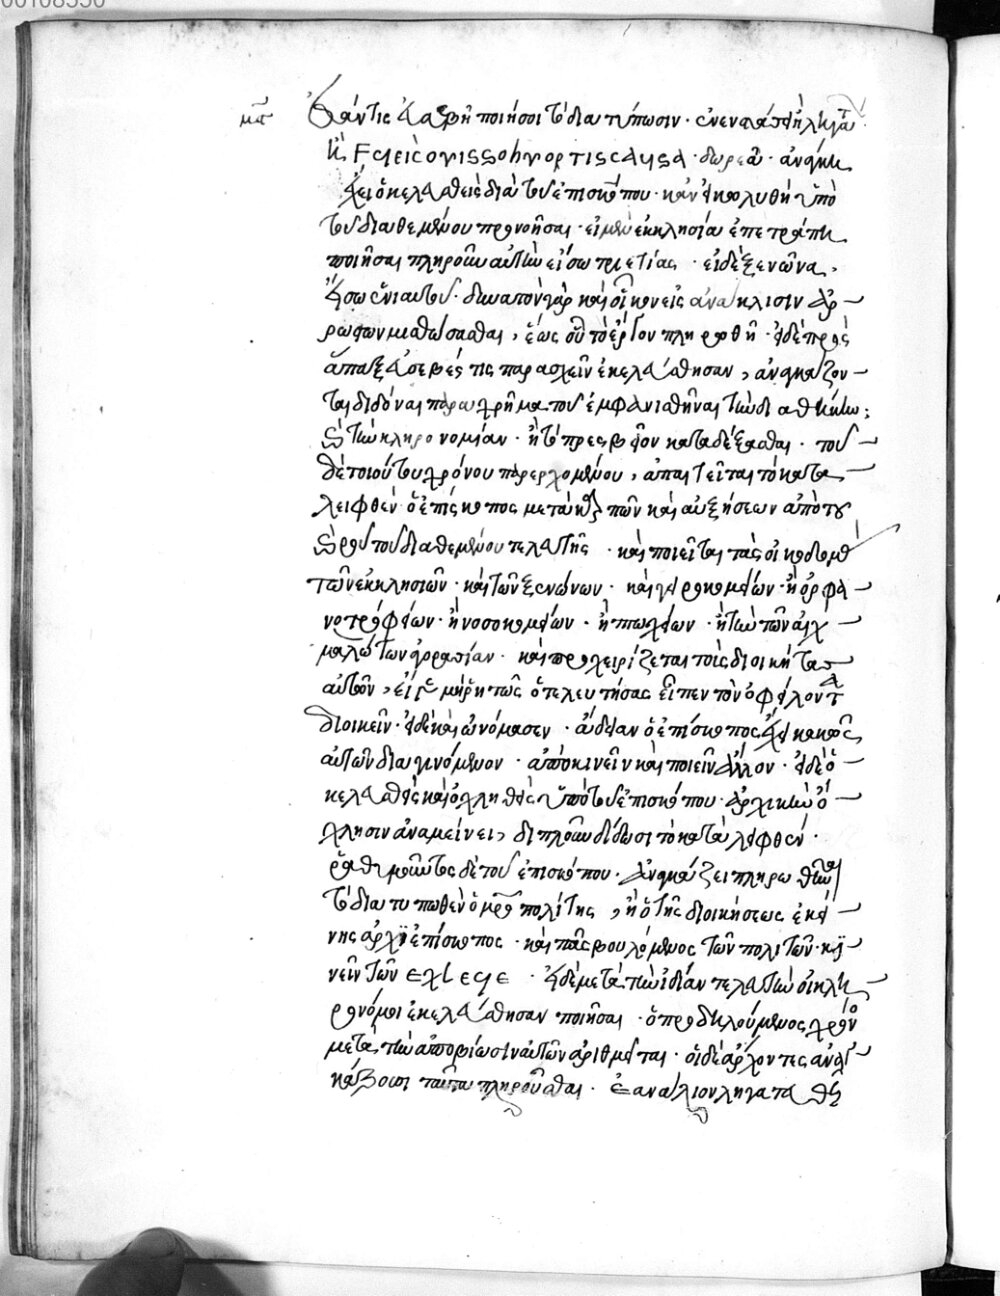 μϛ Ἐάν τις εὐσεβῆ ποιήσοι τὸ διατύπωσιν · ἐν ἐνστάσει ἢ ληγάτ
ἢ FCIEICOMISSO ἢ MORTIS CAUSA · δωρεᾶ · ἀνάγκη
ὁ κελευσθεὶς διὰ τοῦ ἐπισκόπου · κἂν ἐκωλύθη ὑπὸ
τοῦ διαθεμένου προνοῆσαι · εἰ μὲν ἐκκλησίαν ἐπετράπη
ποιῆσαι πληροῦν αὐτὴν εἴσω τριετίας · εἰ δὲ ξενῶνα,
ἔσω ἐνιαυτοῦ · δυνατὸν γὰρ καὶ οἰκονεῖς ἀνακλισιν ἀρ
ρώστων μισθώσασθαι, ἕως οὗ τὸ ἔργον πληρωθῆ · εἰ δὲ πρὸς
ἅπαξ εὐσεβές τις παρασχεῖν ἐκελεύσθησαν, ἀναγκάζον
ται διδόναι παραχρῆμα τοῦ ἐμφανισθῆναι τὴν διαθήκην;
τὴν κληρονομίαν · ἢ τὸ πρεσβεῖον καταδέξασθαι · τοῦ
δὲ τοιούτου χρόνου παρερχομένου, ἀπαιτεῖται τὸ κατα
λειφθὲν ὁ ἐπίσκοπος μετὰ καρπῶν καὶ αὐξήσεων ἀπὸ τῆς
τοῦ διαθεμένου τελευτῆς · καὶ ποιεῖται τὰς οἰκοδομὰς
τῶν ἐκκλησιῶν · καὶ τῶν ξενώνων · καὶ γηροκομείων · ἢ ὀρφα
νοτροφείων · ἢ νοσοκομείων · ἢ πτωχείων · ἢ τὴν τῶν αἰχ
μαλώτων ἀγορασίαν · καὶ προχειρίζεται τοῖς διοικητὰς
αὐτῶν, εἰ μὴ ῥητῶς ὁ τελευτήσας εἶπεν τὸν ὀφείλοντα
διοικεῖν · εἰ δὲ καὶ ὠνόμασεν · αὐτῶν ὁ ἐπίσκοπος κακῶς
αὐτῶν διαγινόμενον · ἀποκινεῖν καὶ ποιεῖν ἄλλον · εἰ δὲ ὁ
κελευσθεὶς καὶ ὀχληθεὶς ὑπὸ τοῦ ἐπισκόπου · ἀρχικὴν ὄ
χλησιν ἀναμείνει, διπλοῦν δίδωσι τὸ καταλειφθέν ·
ῥαθυμοῦντος δὲ τοῦ ἐπισκόπου · ἀναγκάζει πληρωθῆναι
τὸ διατυπωθὲν ὁ μητροπολίτης, ἢ ὁ τῆς διοικήσεως ἐκεί
νης ἀρχϊεπίσκοπος · καὶ πᾶς βουλόμενος τῶν πολιτῶν · κϊ
νεῖν τῶν EX LEGE · εἰ δὲ μετὰ τὴν ἰδίαν τελευτὴν οἱ κλη
ρονόμοι ἐκελεύσθησαν ποιῆσαι · ὁ προδηλούμενος χρόνος
μετὰ τὴν ἀποβίωσιν αὐτῶν ἀριθμεῖται · οἱ δὲ ἄρχοντες ἀναγ
κάζουσι ταῦτα πληροῦσθαι · ληγατα